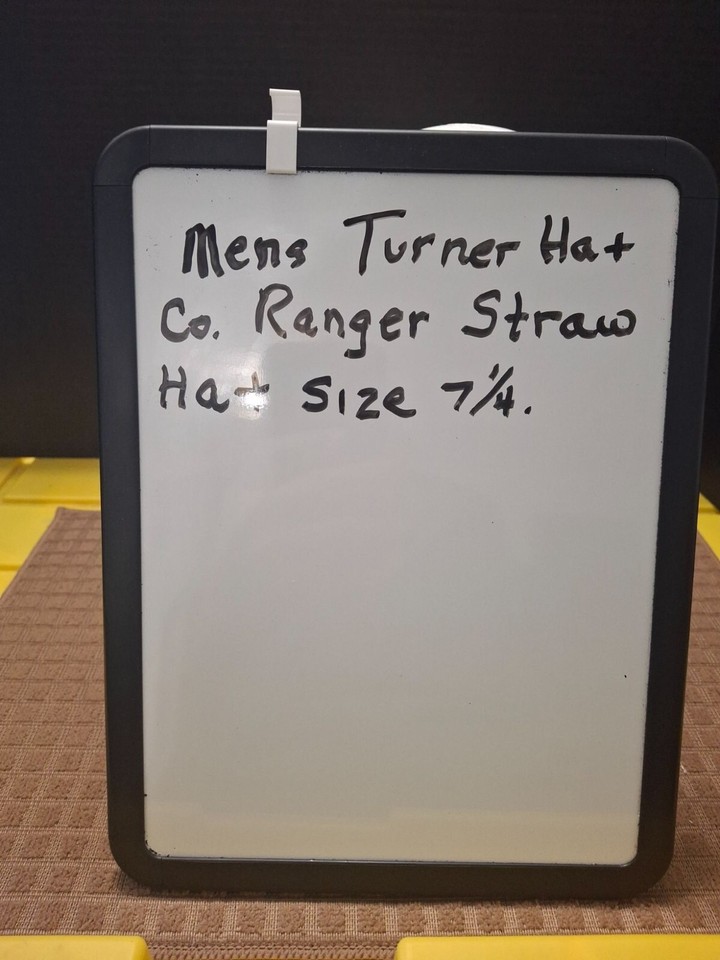 Mens Turner Hat
Co. Ranger Straw
Hat Size 7 1/4.